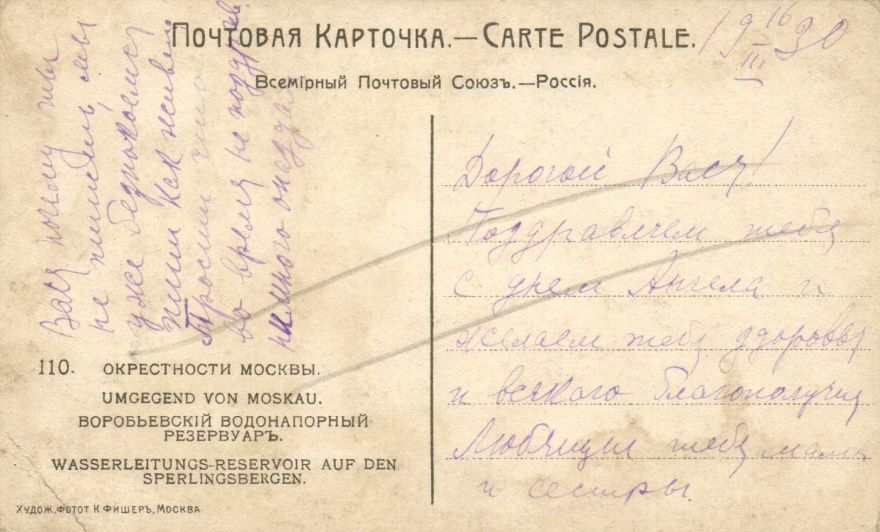 ПОЧТОВАЯ КАРТОЧКА.—CARTE POSTALE.
Всемірный Почтовый Союзъ.—Россія.
19 16/III 30
Дорогой Вася!
Поздравляем тебя
с днем Ангела и
желаем тебе здоровья
и всякого благополучия
Любящие тебя мама
и сестры.
Вася почему ты
не пишешь, мы
уже беспокоемся
пиши как живеш
Просим что
во время не поздрав
немного опозда
110. ОКРЕСТНОСТИ МОСКВЫ.
UMGEGEND VON MOSKAU.
ВОРОБЬЕВСКІЙ ВОДОНАПОРНЫЙ
РЕЗЕРВУАРЪ.
WASSERLEITUNGS-RESERVOIR AUF DEN
SPERLINGSBERGEN.
ХУДОЖ. ФОТОТ. К. ФИШЕРЪ, МОСКВА